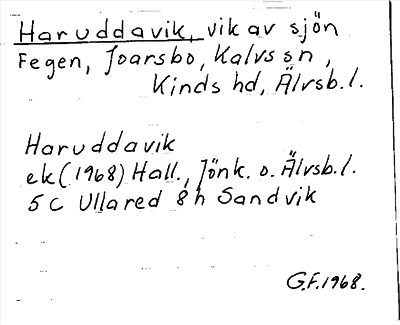 Haruddavik, vik av sjön
Fegen, Joarsbo, Kalvs sn,
Kinds hd, Älvsb.l.
Haruddavik
ek(1968) Hall., Jönk. o. Älvsb.l.
5C Ullared 8h Sandvik
G.F.1968.